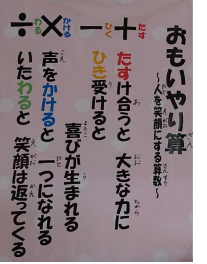 おもいやり算
～人を笑顔にする算数～
＋ たす
－ ひく
× かける
÷ わる
たすけ合うと 大きな力に
ひき受けると
喜びが生まれる
声をかけると 一つになれる
いたわると 笑顔は返ってくる